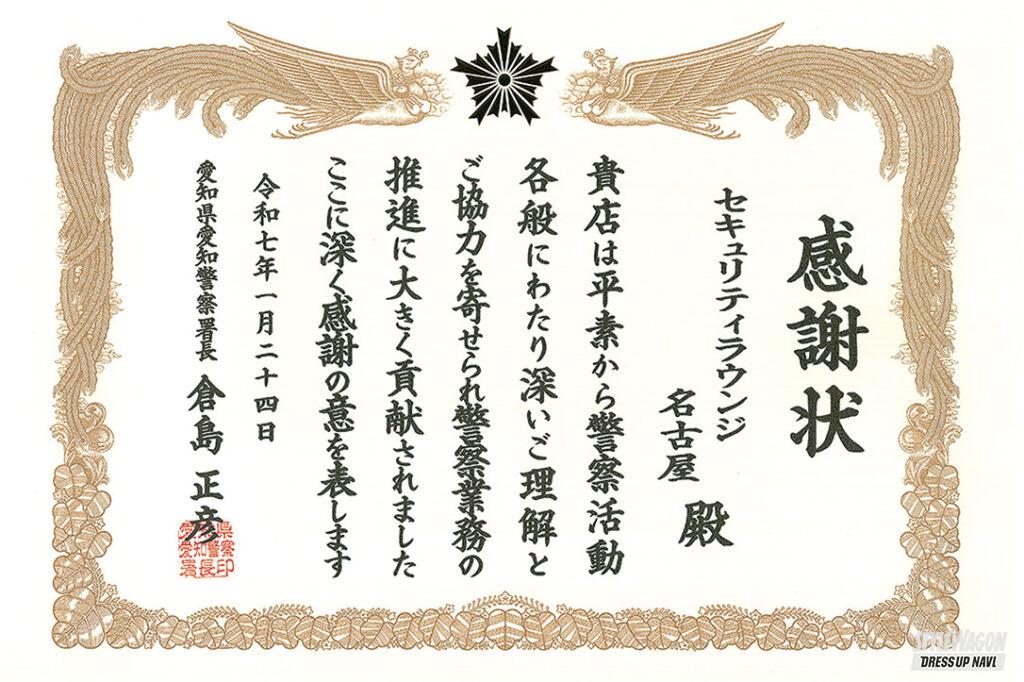 感謝状
セキュリティラウンジ
名古屋 殿
貴店は平素から警察活動
各般にわたり深いご理解と
ご協力を寄せられ警察業務の
推進に大きく貢献されました
ここに深く感謝の意を表します
令和七年一月二十四日
愛知県愛知警察署長 倉島正彦
県察印
知警長
愛愛署
STYLE WAGON
DRESS UP NAVI